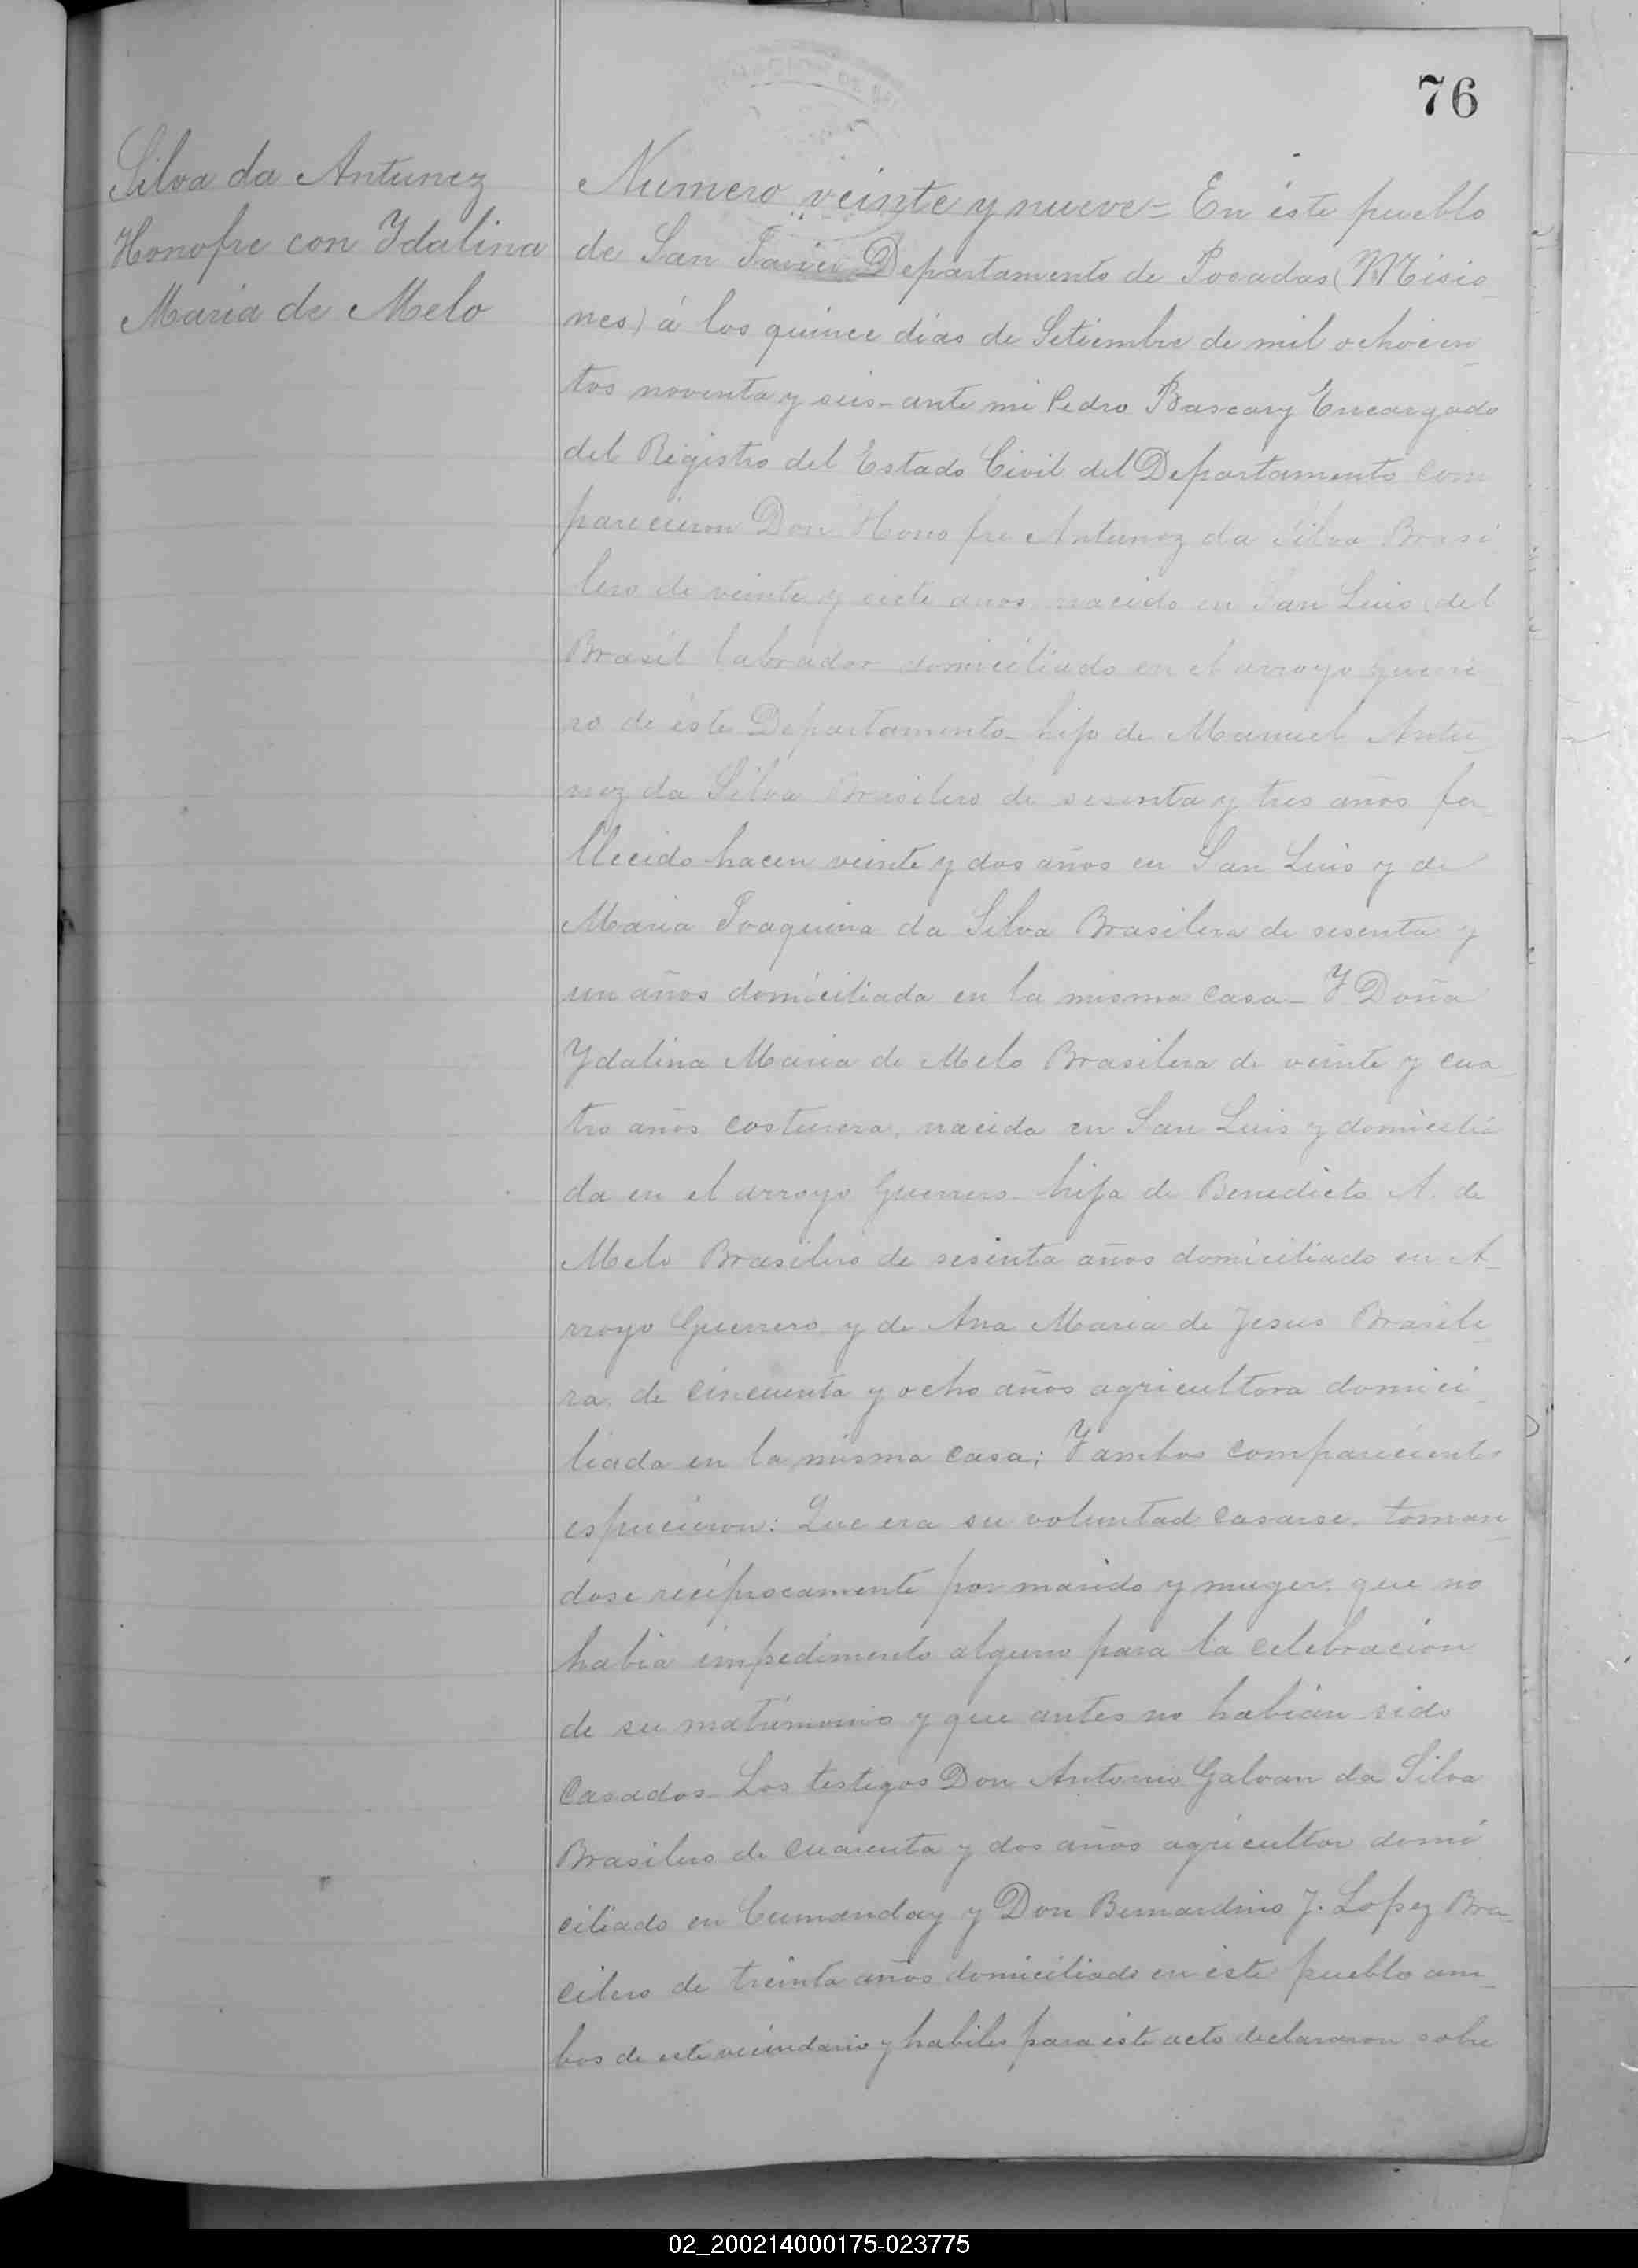 76
Silva da Antunez
Honofre con Ydalina
Maria de Melo
Numero veinte y nueve = En éste pueblo
de San Javier Departamento de Posadas (Misio_
nes) á los quince dias de Setiembre de mil ochocien_
tos noventa y seis - ante mi Pedro Bascary Encargado
del Registro del Estado Civil del Departamento com
parecieron Don Honofre Antunez da Silva Brasi
lero de veinte y siete anos, nacido en San Luis (del
Brasil labrador domiciliado en el arroyo guerre
ro de éste Departamento - hijo de Manuel Antu_
nez da Silva Brasilero de sesenta y tres años fa_
llecido hacen veinte y dos años en San Luis y de
Maria Joaquina da Silva Brasilera de sesenta y
un años domiciliada en la misma casa - Y Doña
Ydalina Maria de Melo Brasilera de veinte y cua_
tro años costurera, nacida en San Luis y domicilia
da en el arroyo Guerrero - hija de Benedicto A. de
Melo Brasilero de sesenta años domiciliado en A_
rroyo Guerrero y de Ana Maria de Jesus Brasile_
ra, de cincuenta y ocho años agricultora domici_
liada en la misma casa; Y ambos comparecientes
espusieron: Que era su voluntad casarse, toman_
dose reciprocamente por marido y muger, que no
habia impedimento alguno para la celebracion
de su matrimonio y que antes no habian sido
Casados - Los testigos Don Antonio Galvan da Silva
Brasilero de cuarenta y dos años agricultor domi_
ciliado en Cumanday y Don Bernardino J. Lopez Bra_
cilero de treinta años domiciliado en éste pueblo am_
bos de este vecindario y habiles para éste acto declararon sobre
02_200214000175-023775